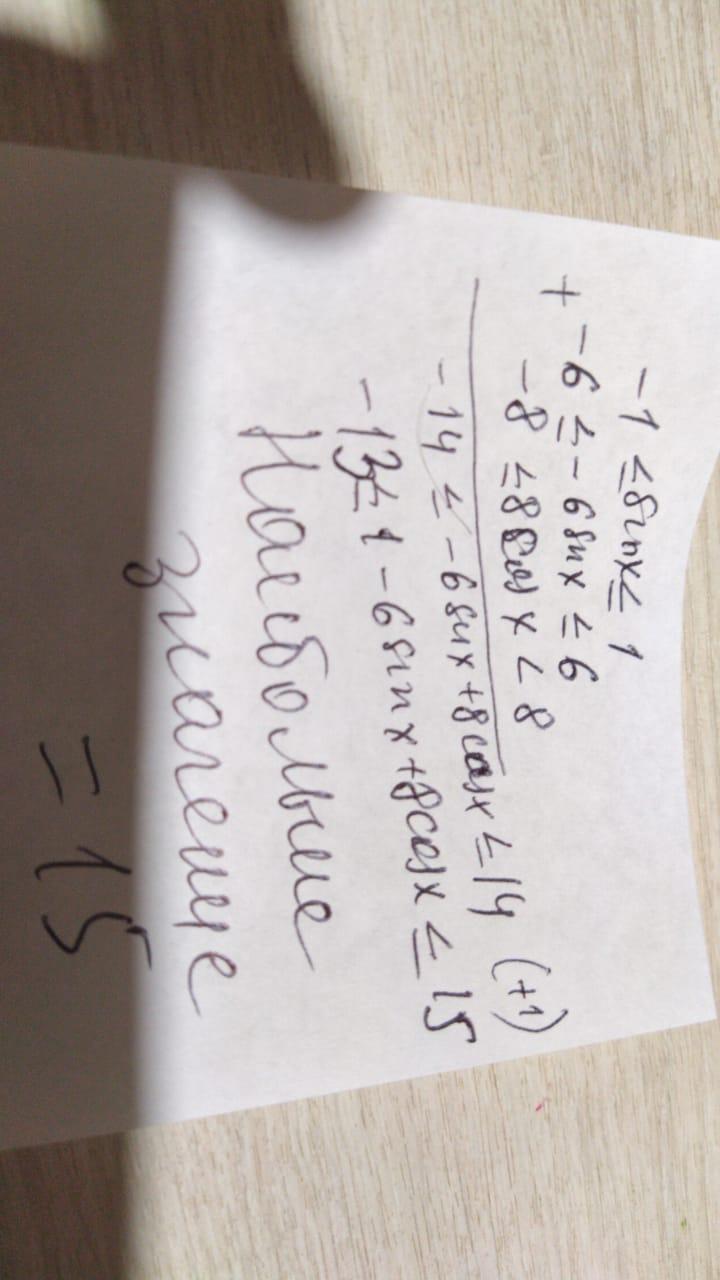 -1 ≤ sinx ≤ 1
+ -6 ≤ -6 sinx ≤ 6
-8 ≤ 8 cos x < 8
-14 ≤ -6 sinx + 8 cosx ≤ 14 (+1)
-13 ≤ 1 - 6 sinx + 8 cosx ≤ 15
Наибольшее
значение
= 15